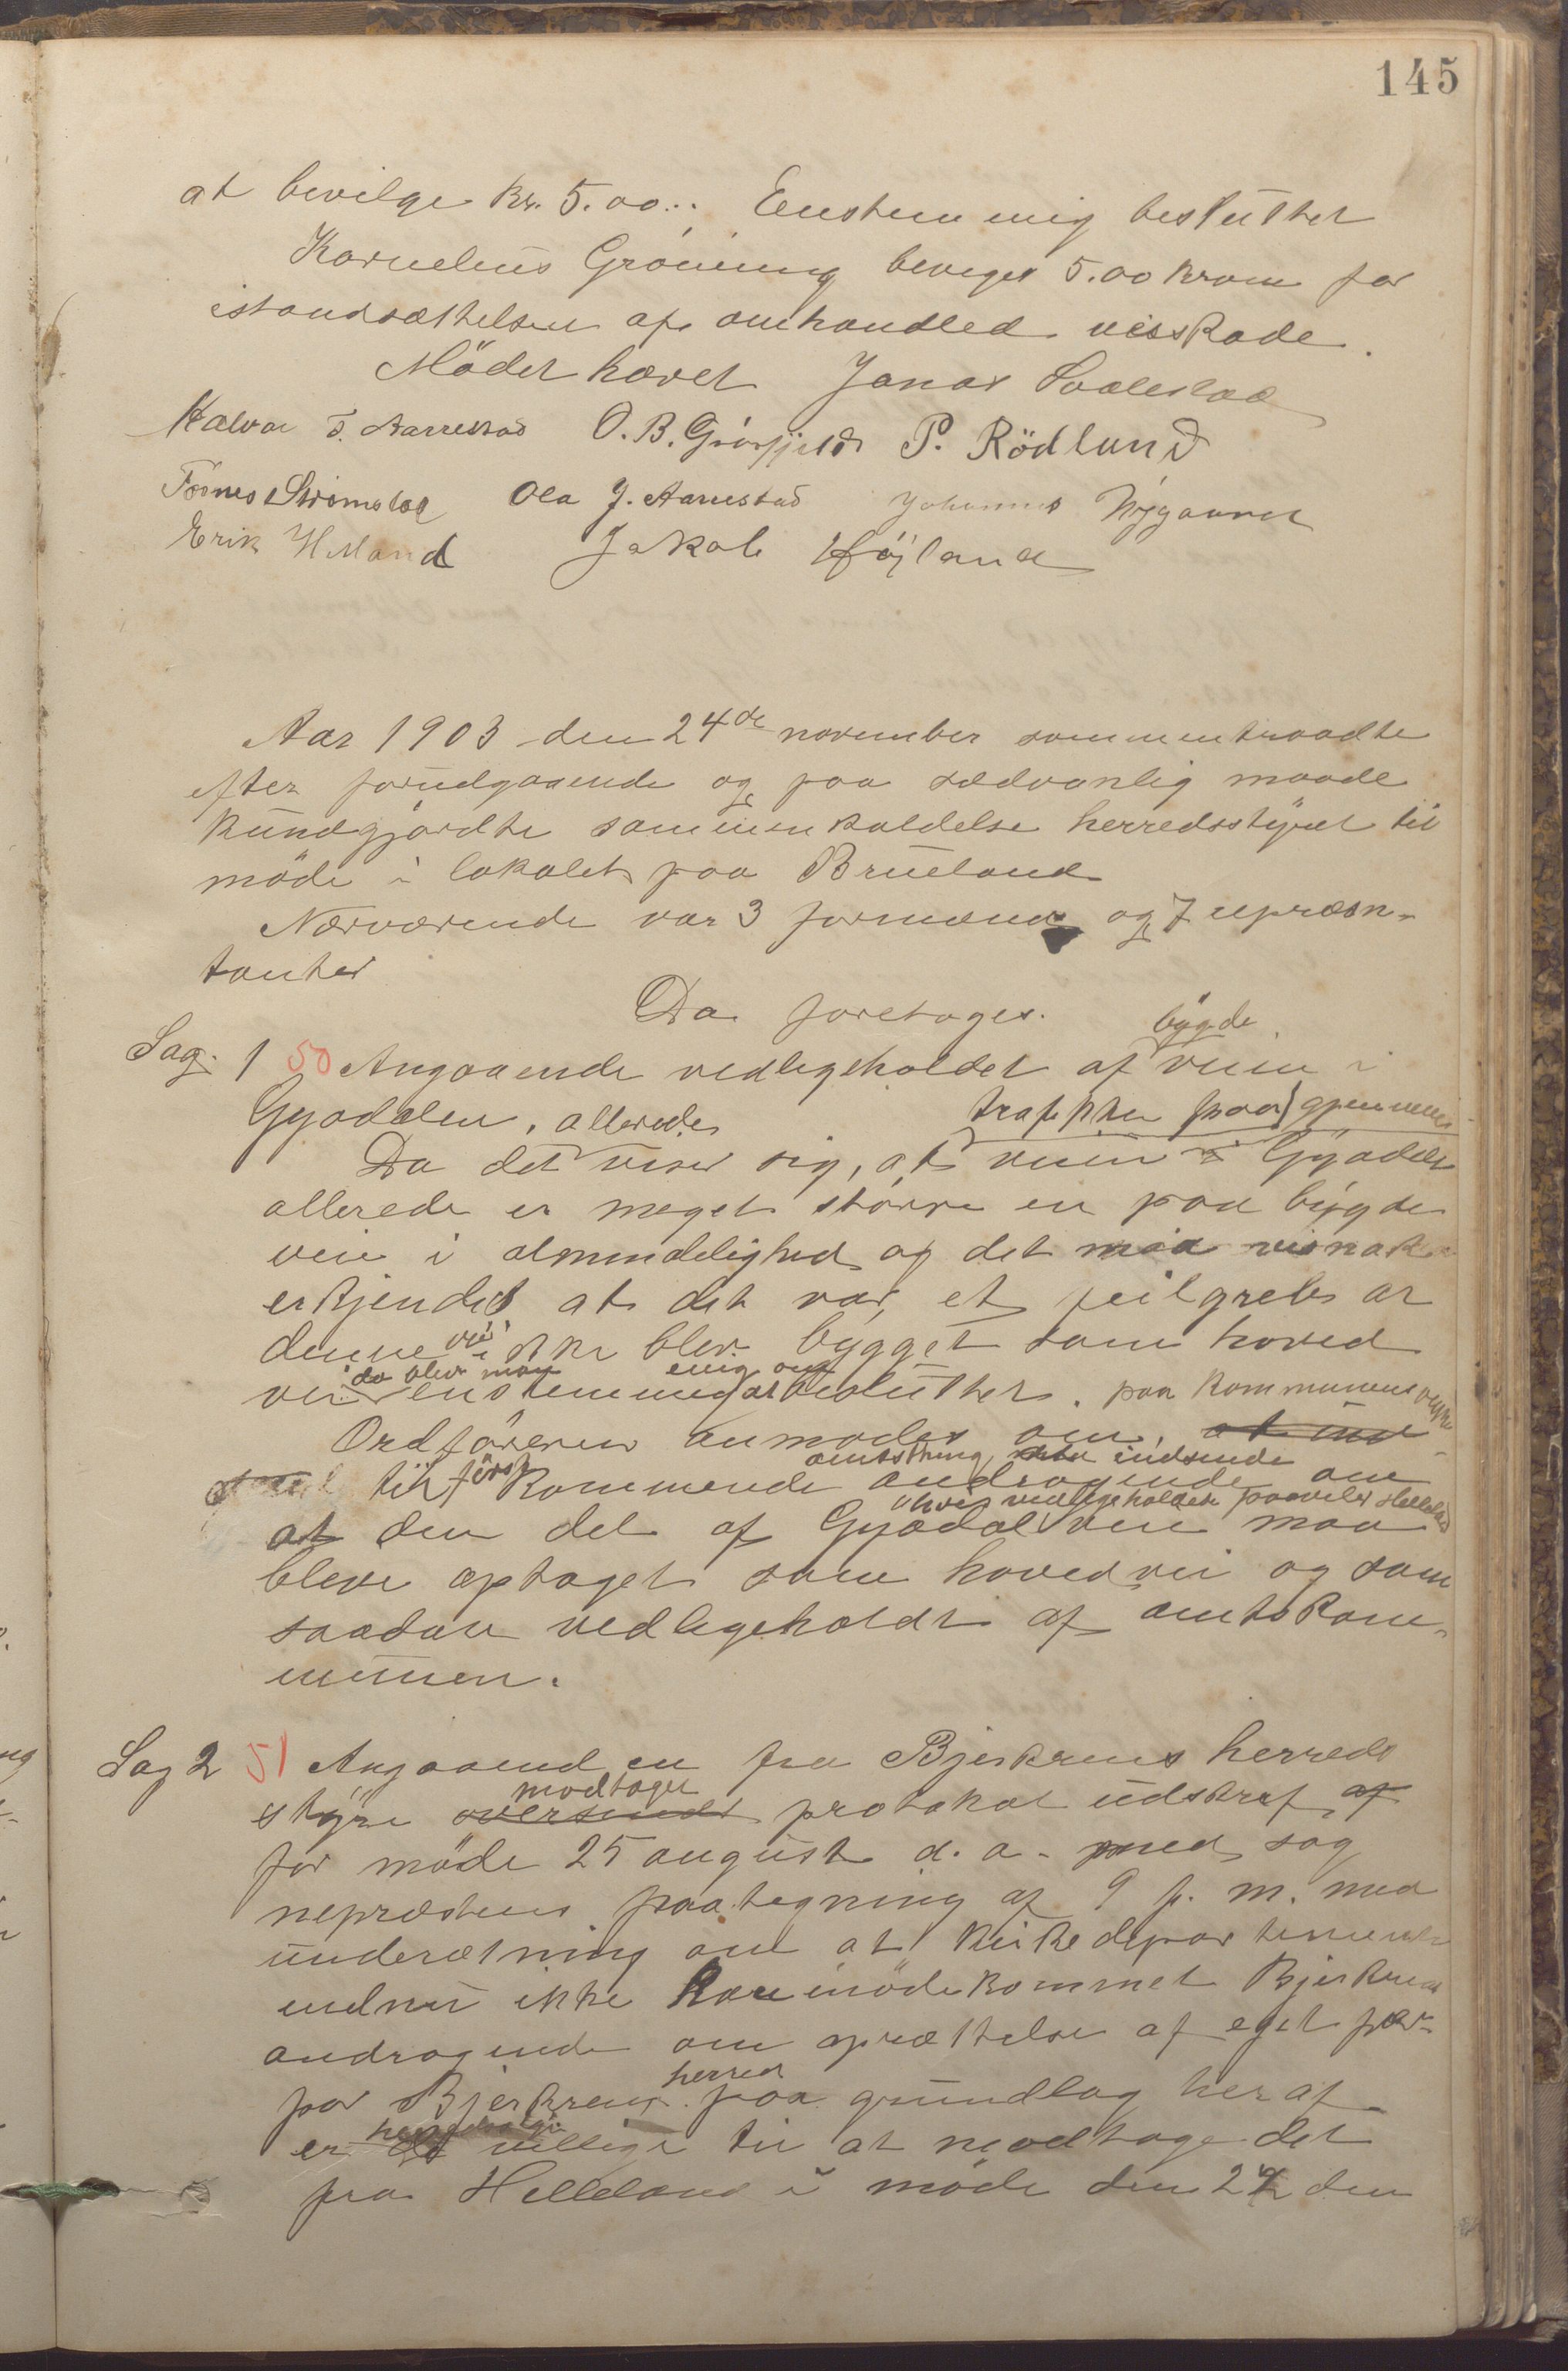 145
at bevilge kr. 5.00. Enstemmig besluttet
Kornelius Gröning beviges 5.00 krone for
istandsættelsen af omhandled veiskade.
Mödet hævet Jonas Svalestad
Halvor T. Aarrestad O. B. Grösfjeld P. Rödland
Tönnes Strömstad Ola J. Aarrestad Johannes Nygaard
Erik Helland Jakob Höjland
Aar 1903 den 24de november sammentraadte
efter forudgaaende og paa sædvanlig maade
kundgjordte sammenkaldelse herredsstyret til
möde i lokalet paa Brueland
Nærværende var 3 formænd og 7 repræsn-
tanter
Da foretoges.
Sag. 1 50 Angaaende vedligeholdet af bygde veien i
Gyadalen, allerede
Da det viser sig, at trafikken paa gjennem veien i Gyadal
allerede er meget större en paa bygde
veie i almindelighed og det maa
erkjendes at det var et feilgreb at
denne vei ikke blev bygget som hoved
vei da blev man enstemmig enig om at besluttet. paa kommunens vegne
Ordföreren anmodes om, at ind
til först kommende amtsthing indsende andragende om
at den del af Gyadal veie hvis vedligeholdet paaviler Helleland maa
blive optaget som hovedvei og som
saadan vedligeholdt af amtskom-
munen.
Sag 2 51 Angaaend en fra Bjerkrems herreds
styre oversendt modtaget protokol udskrift af
for möde 25 august d. a. med sog
nepræstens paategning af 9 f. m. med
underætning om at kirkedepartement
endnu ikke har imödekommet Bjerkrem
andragende om oprættelse af eget
for Bjerkrem herred paa grundlag heraf
er villige til at modtage det
fra Helleland i möde den 24 den